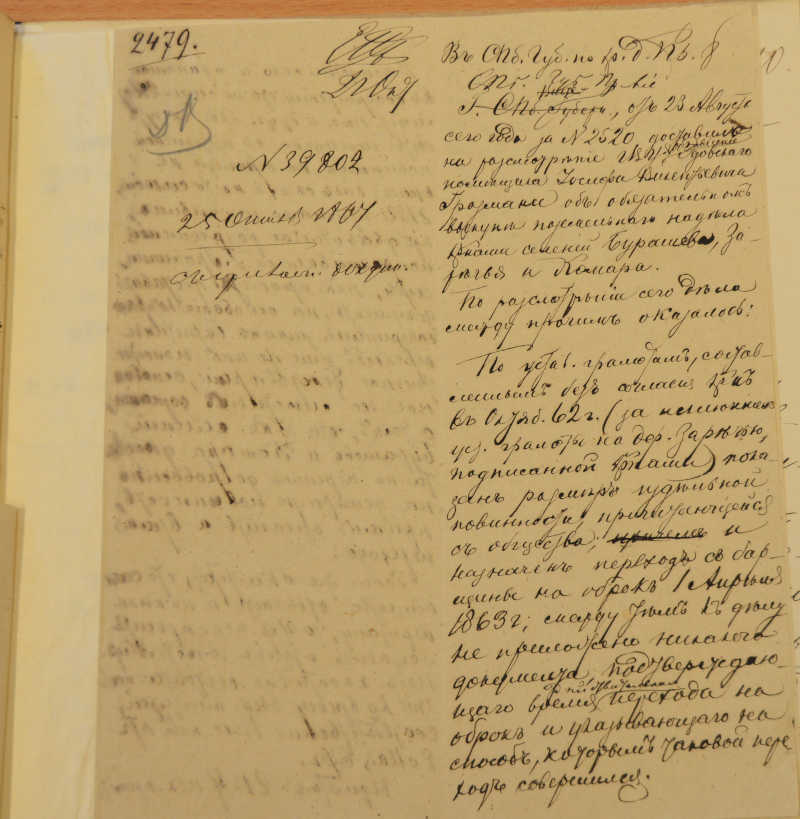 2479.
№ 39802
25 Октяб 1867
Въ СПб. Губ. по кр. д. Пр.
СПб. Губ. Пр-віе
Г. СПб Губерн., отъ 23 Августа
сего года за № 2520 доставилъ
на разсмотрѣніе Гдовскаго
помѣщика Іосифа Викентьевича
объ обязательномъ
выкупѣ поземельнаго надѣла
кр-нами селеній Бурашева, За-
рѣчья и Комара.
По разсмотрѣніи сего дѣла
между прочимъ оказалось:
По устав. грамотамъ, состав-
леннымъ безъ согласія кр-нъ
въ Октяб. 62 г. (за исключеніемъ
уст. грамоты на дер. Зарѣчью,
подписанной кр-нами) пока-
занъ размѣръ издѣльной
повинности, причитающейся
съ общества, причемъ и
назначенъ переходъ съ бар-
щины на оброкъ 1 Апрѣля
1863 г; между тѣмъ къ дѣлу
не приложено никакого
документа, подтверждаю-
щаго время дѣйствительнаго перехода на
оброкъ и указывающаго на
способъ, которымъ таковой пере
ходъ совершился.